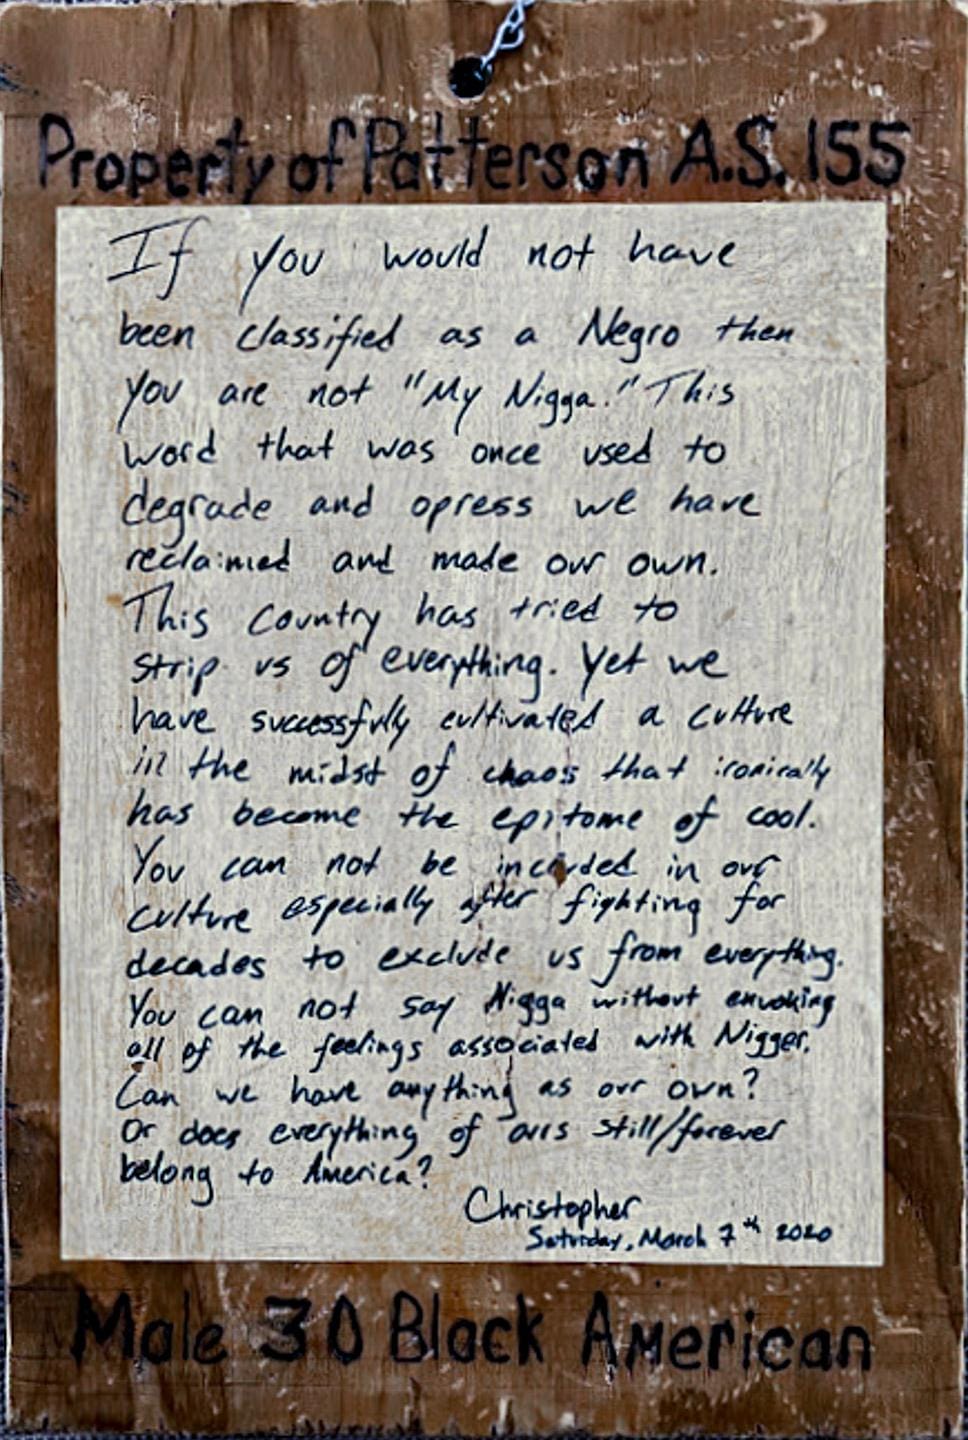 Property of Patterson A.S. 155
If you would not have
been classified as a Negro then
you are not "My Nigga." This
word that was once used to
degrade and opress we have
reclaimed and made our own.
This country has tried to
strip us of everything. Yet we
have successfully cultivated a culture
in the midst of chaos that ironically
has become the epitome of cool.
You can not be included in our
culture especially after fighting for
decades to exclude us from everything.
You can not say Nigga without envoking
all of the feelings associated with Nigger.
Can we have anything as our own?
Or does everything of ours still/forever
belong to America?
Christopher
Saturday, March 7th 2020
Male 30 Black American